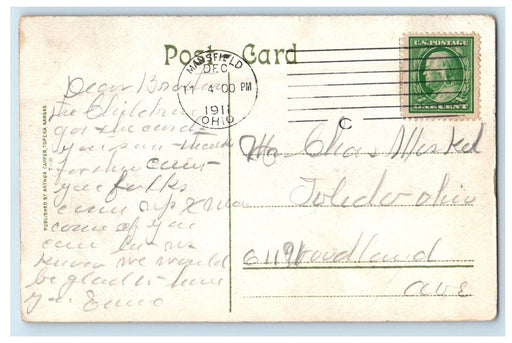 Post Card
U.S. POSTAGE
MANSFIELD
DEC
11 4 00 PM
1911
OHIO
C
Dear Brother
the Children
got the cards
you sent thanks
for them cant
you folks
come up X mas
come if you
can let us
know we would
be glad to have
you
Mr Chas
Toledo ohio
611 Woodland
ave
PUBLISHED BY ARTHUR CAPPER, TOPEKA KANSAS